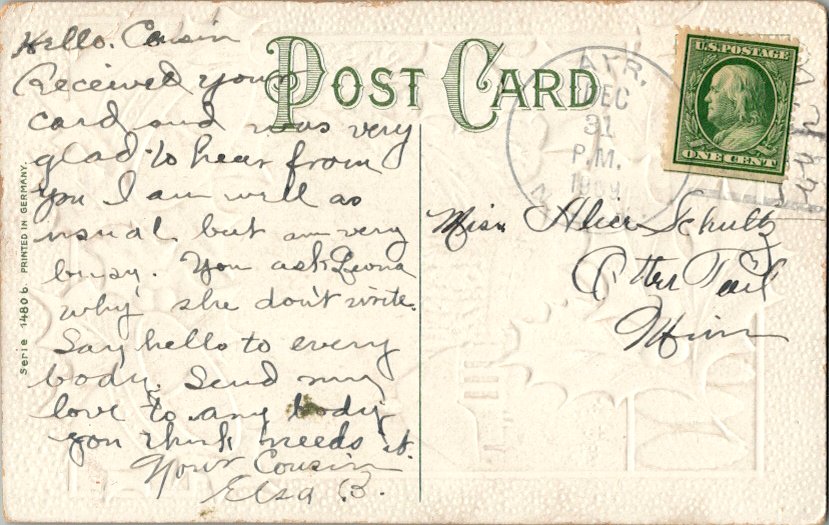 Hello. Cousin
Received your
card and was very
glad to hear from
you I am well as
usual but am very
busy. You ask Leona
why she don't write.
Say hello to every
body. Send my
love to any body
you think needs it.
Your Cousin
Elsa B.
POST CARD
AYR,
DEC
31
P.M.
1909
U.S. POSTAGE
ONE CENT
Miss Alice Schultz
Otter Tail
Minn
Serie 1480 b. PRINTED IN GERMANY.